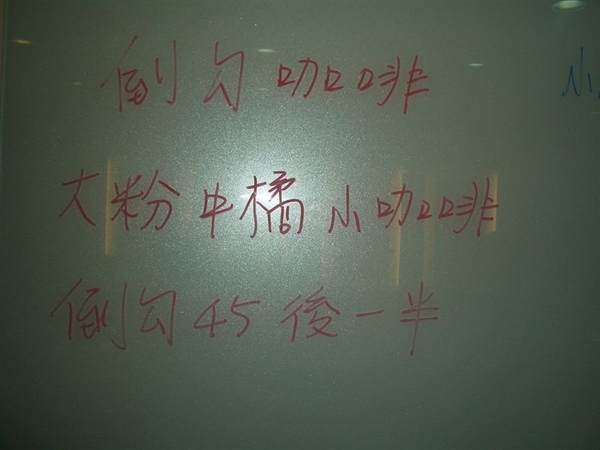 倒勾咖啡
大粉中橘小咖啡
倒勾45後一半
小